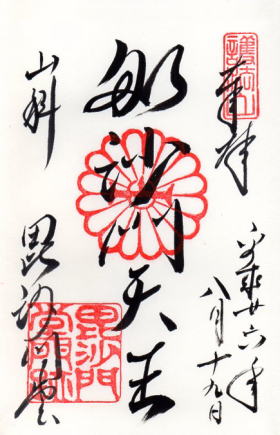 奉拝
平成廿六年
八月十九日
毘沙門天王
山科
毘沙門堂
護法山
毘沙門